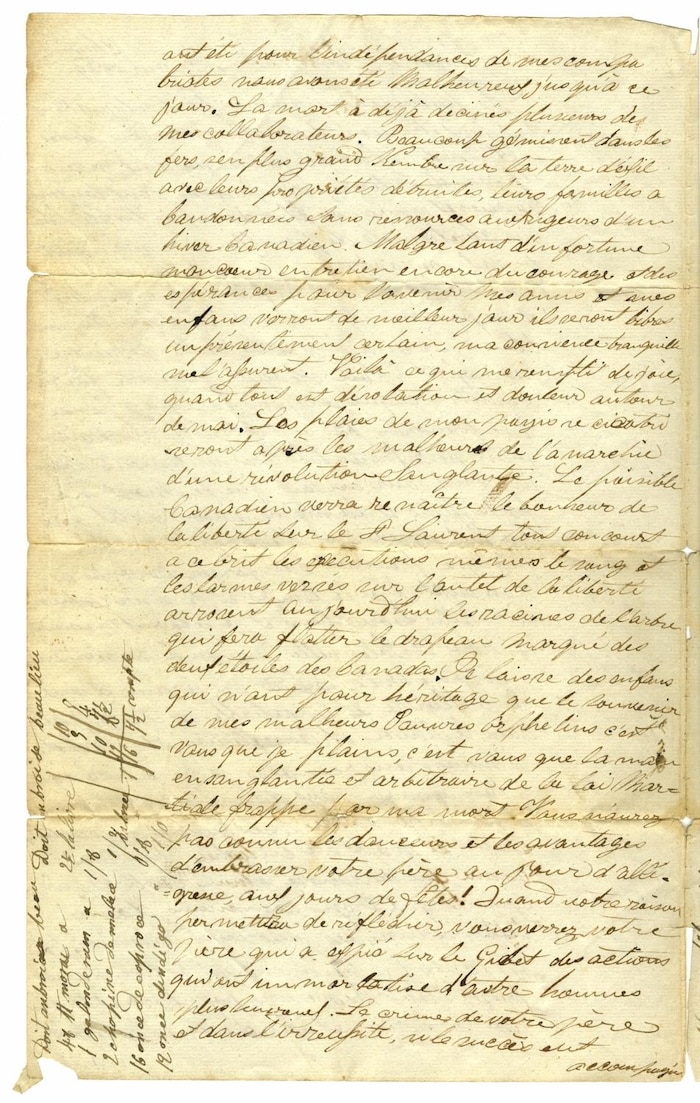 ont été pour l'indépendances de mes compa
triotes nous avons été Malheureux jusqu'à ce
jour. La mort à déjà decinés plusieurs des
mes collaborateurs. Beaucoup gémisent dans les
fers, en plus grand Nombre sur la terre d'éxil
avec leurs propriétés detruites, leurs familles a
bandonnées sans ressources aux rigeurs d'un
hiver Canadien. Malgré tant d'infortune
mon coeur entretien encore du courage et des
espérances pour l'avenir Mes amis et mes
enfans verront de meilleur jour ils seront libres
un présentement certain, ma conscience tranquille
me l'assurent. Voilà ce qui me remplit de joie,
quand tout est désolation et douleur autour
de moi. Les plaies de mon pays se cicatri
seront après les malheurs de l'anarchie
d'une révolution Sanglante. Le paisible
Canadien verra renaître le bonheur de
la liberté sur le St Laurent tout concourt
a ce but les exécutions mêmes le sang et
les larmes versés sur l'autel de la liberté
arrosent aujourd'hui les racines de l'arbre
qui fera flotter le drapeau marqué des
deux étoiles des Canadas. Je laisse des enfans
qui n'ont pour héritage que le souvenir
de mes malheurs Pauvres orphelins c'est
vous que je plains, c'est vous que la main
ensanglantée et arbitraire de la loi Mar-
tiale frappe par ma mort. Vous n'aurez
pas connu les douceurs et les avantages
d'embrasser votre père au jour d'allé-
gresse, aux jours de fêtes! Quand votre raison
permettra de réflechir, vous verrez votre
père qui a expié sur le Gibet des actions
qui ont immortalisé d'autre hommes
plus heureux. Le crime de votre père
est dans l'irreusite, si le succès eut
accompagné
Doit ambroise beau Doit ambroise beaulieu
1 galon de rum a 1/8
16 once de coproce
12 once dindigo
compte